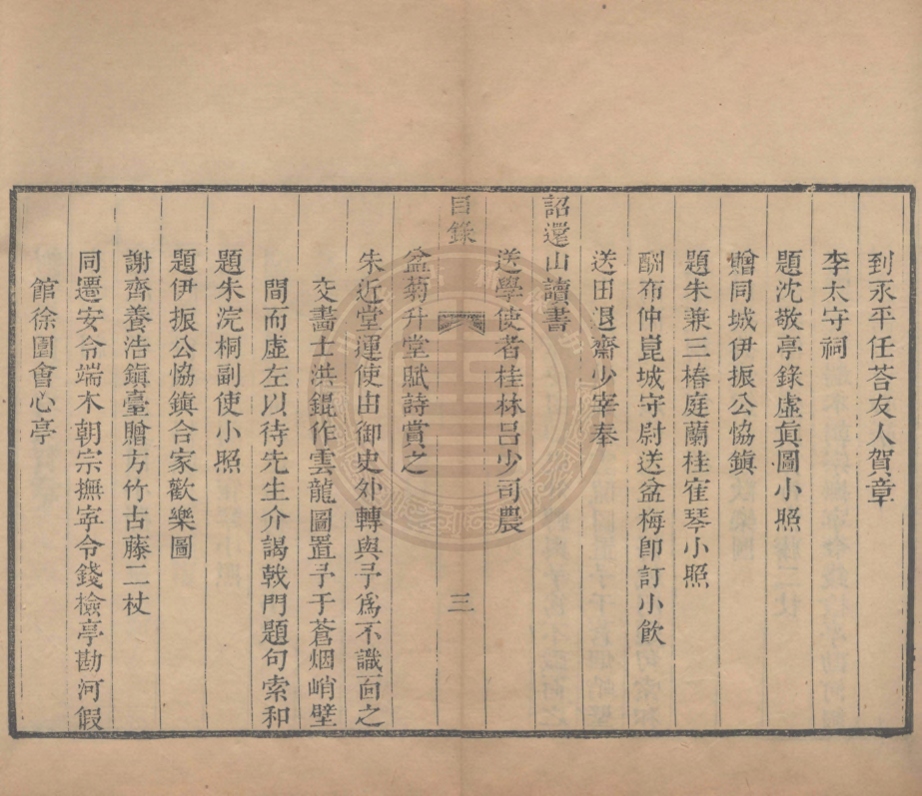 到永平任荅友人賀章
李太守祠
題沈敬亭錄虛眞圖小照
贈同城伊振公協鎭
題朱兼三椿庭蘭桂寉琴小照
酬布仲崑城守尉送盆梅卽訂小飮
送田退齋少宰奉
詔還山讀書
送學使者桂林呂少司農
目錄
三
盆菊升堂賦詩賞之
朱近堂運使由御史外轉與予爲不識面之
交畵士洪錕作雲龍圖置予于蒼烟峭壁
間而虛左以待先生介謁戟門題句索和
題朱浣桐副使小照
題伊振公協鎭合家歡樂圖
謝齊養浩鎭臺贈方竹古藤二杖
同遷安令端木朝宗撫寧令錢檢亭勘河假
館徐圍會心亭